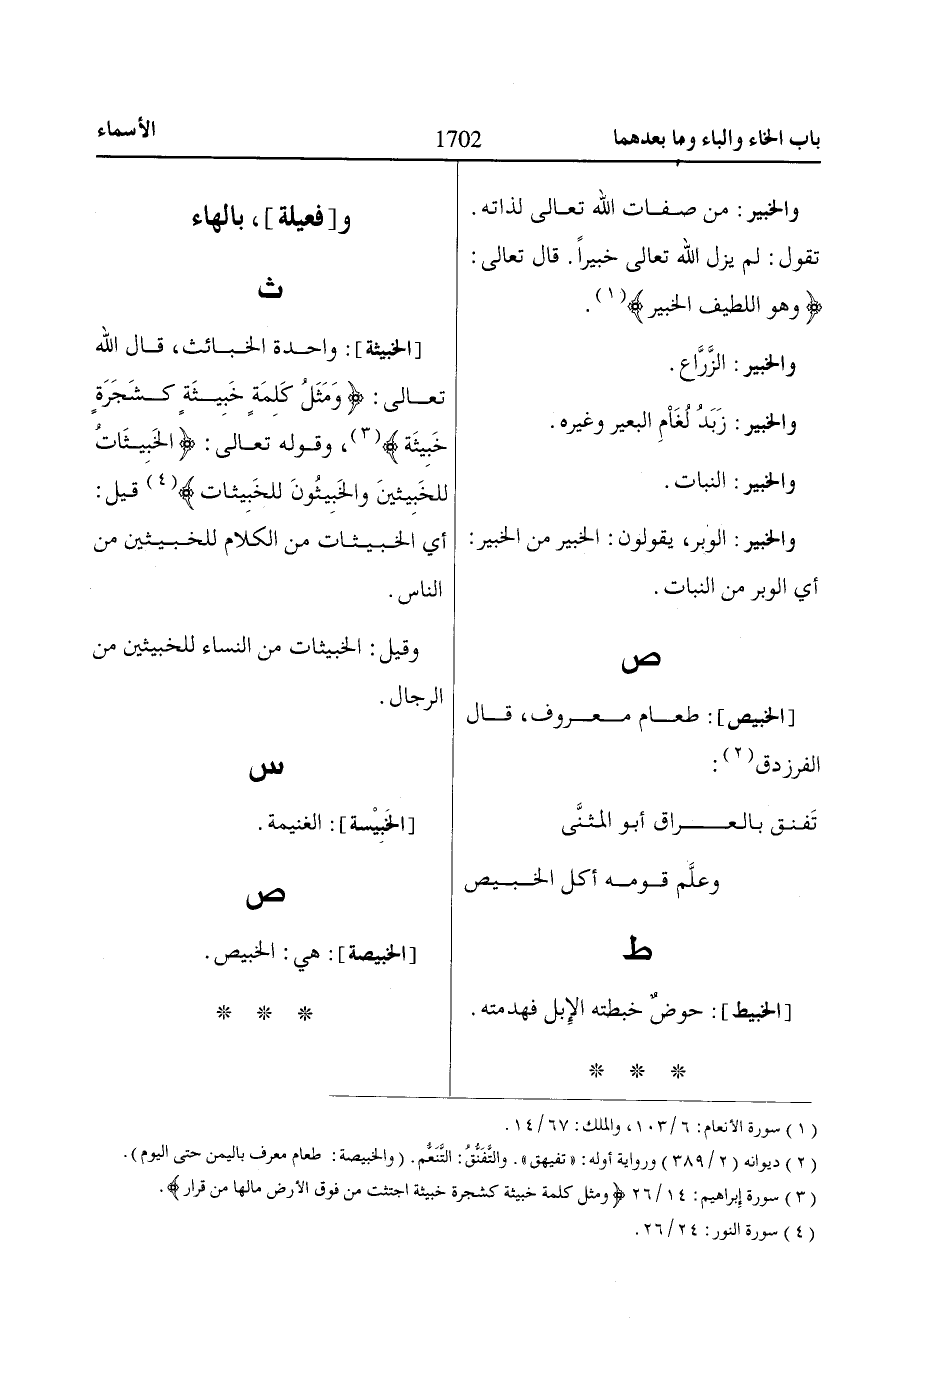 باب الخاء والباء وما بعدهما
1702
الأسماء
والخبير: من صفات الله تعالى لذاته.
تقول: لم يزل الله تعالى خبيراً. قال تعالى:
﴿وهو اللطيف الخبير﴾(١).
والخبير: الزَّرَّاع.
والخبير: زَبَدُ لُغَامِ البعير وغيره.
والخبير: النبات.
والخبير: الوَبر، يقولون: الخبير من الخبير:
أي الوبر من النبات.
ص
[الخبيص]: طعام معروف، قال
الفرزدق(٢):
تَفنق بالعراق أبو المثنَّى
وعلَّم قومه أكل الخبيص
ط
[الخبيط]: حوضٌ خبطته الإبل فهدمته.
* * *
و[فعيلة]، بالهاء
ث
[الخبيثة]: واحدة الخبائث، قال الله
تعالى: ﴿وَمَثَلُ كَلِمَةٍ خَبِيثَةٍ كَشَجَرَةٍ
خَبِيثَة﴾(٣)، وقوله تعالى: ﴿الخَبِيثَاتُ
للخَبِيثينَ والخَبِيثُونَ للخَبِيثات﴾(٤) قيل:
أي الخبيثات من الكلام للخبيثين من
الناس.
وقيل: الخبيثات من النساء للخبيثين من
الرجال.
س
[الخَبِيْسة]: الغنيمة.
ص
[الخبيصة]: هي: الخبيص.
* * *
(١) سورة الأنعام: ٦/ ١٠٣، والملك: ٦٧/ ١٤.
(٢) ديوانه (٢/ ٣٨٩) ورواية أوله: «تفيهق». والتَّفَنُّقُ: التَّنَعُّم. (والخبيصة: طعام معرف باليمن حتى اليوم).
(٣) سورة إبراهيم: ١٤/ ٢٦ ﴿ومثل كلمة خبيثة كشجرة خبيثة اجتثت من فوق الأرض مالها من قرار﴾.
(٤) سورة النور: ٢٤/ ٢٦.